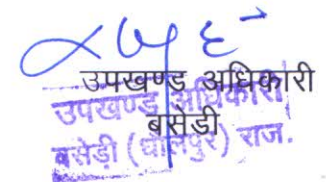 उपखण्ड अधिकारी
बसेडी
उपखण्ड अधिकारी
बसेड़ी (धौलपुर) राज.